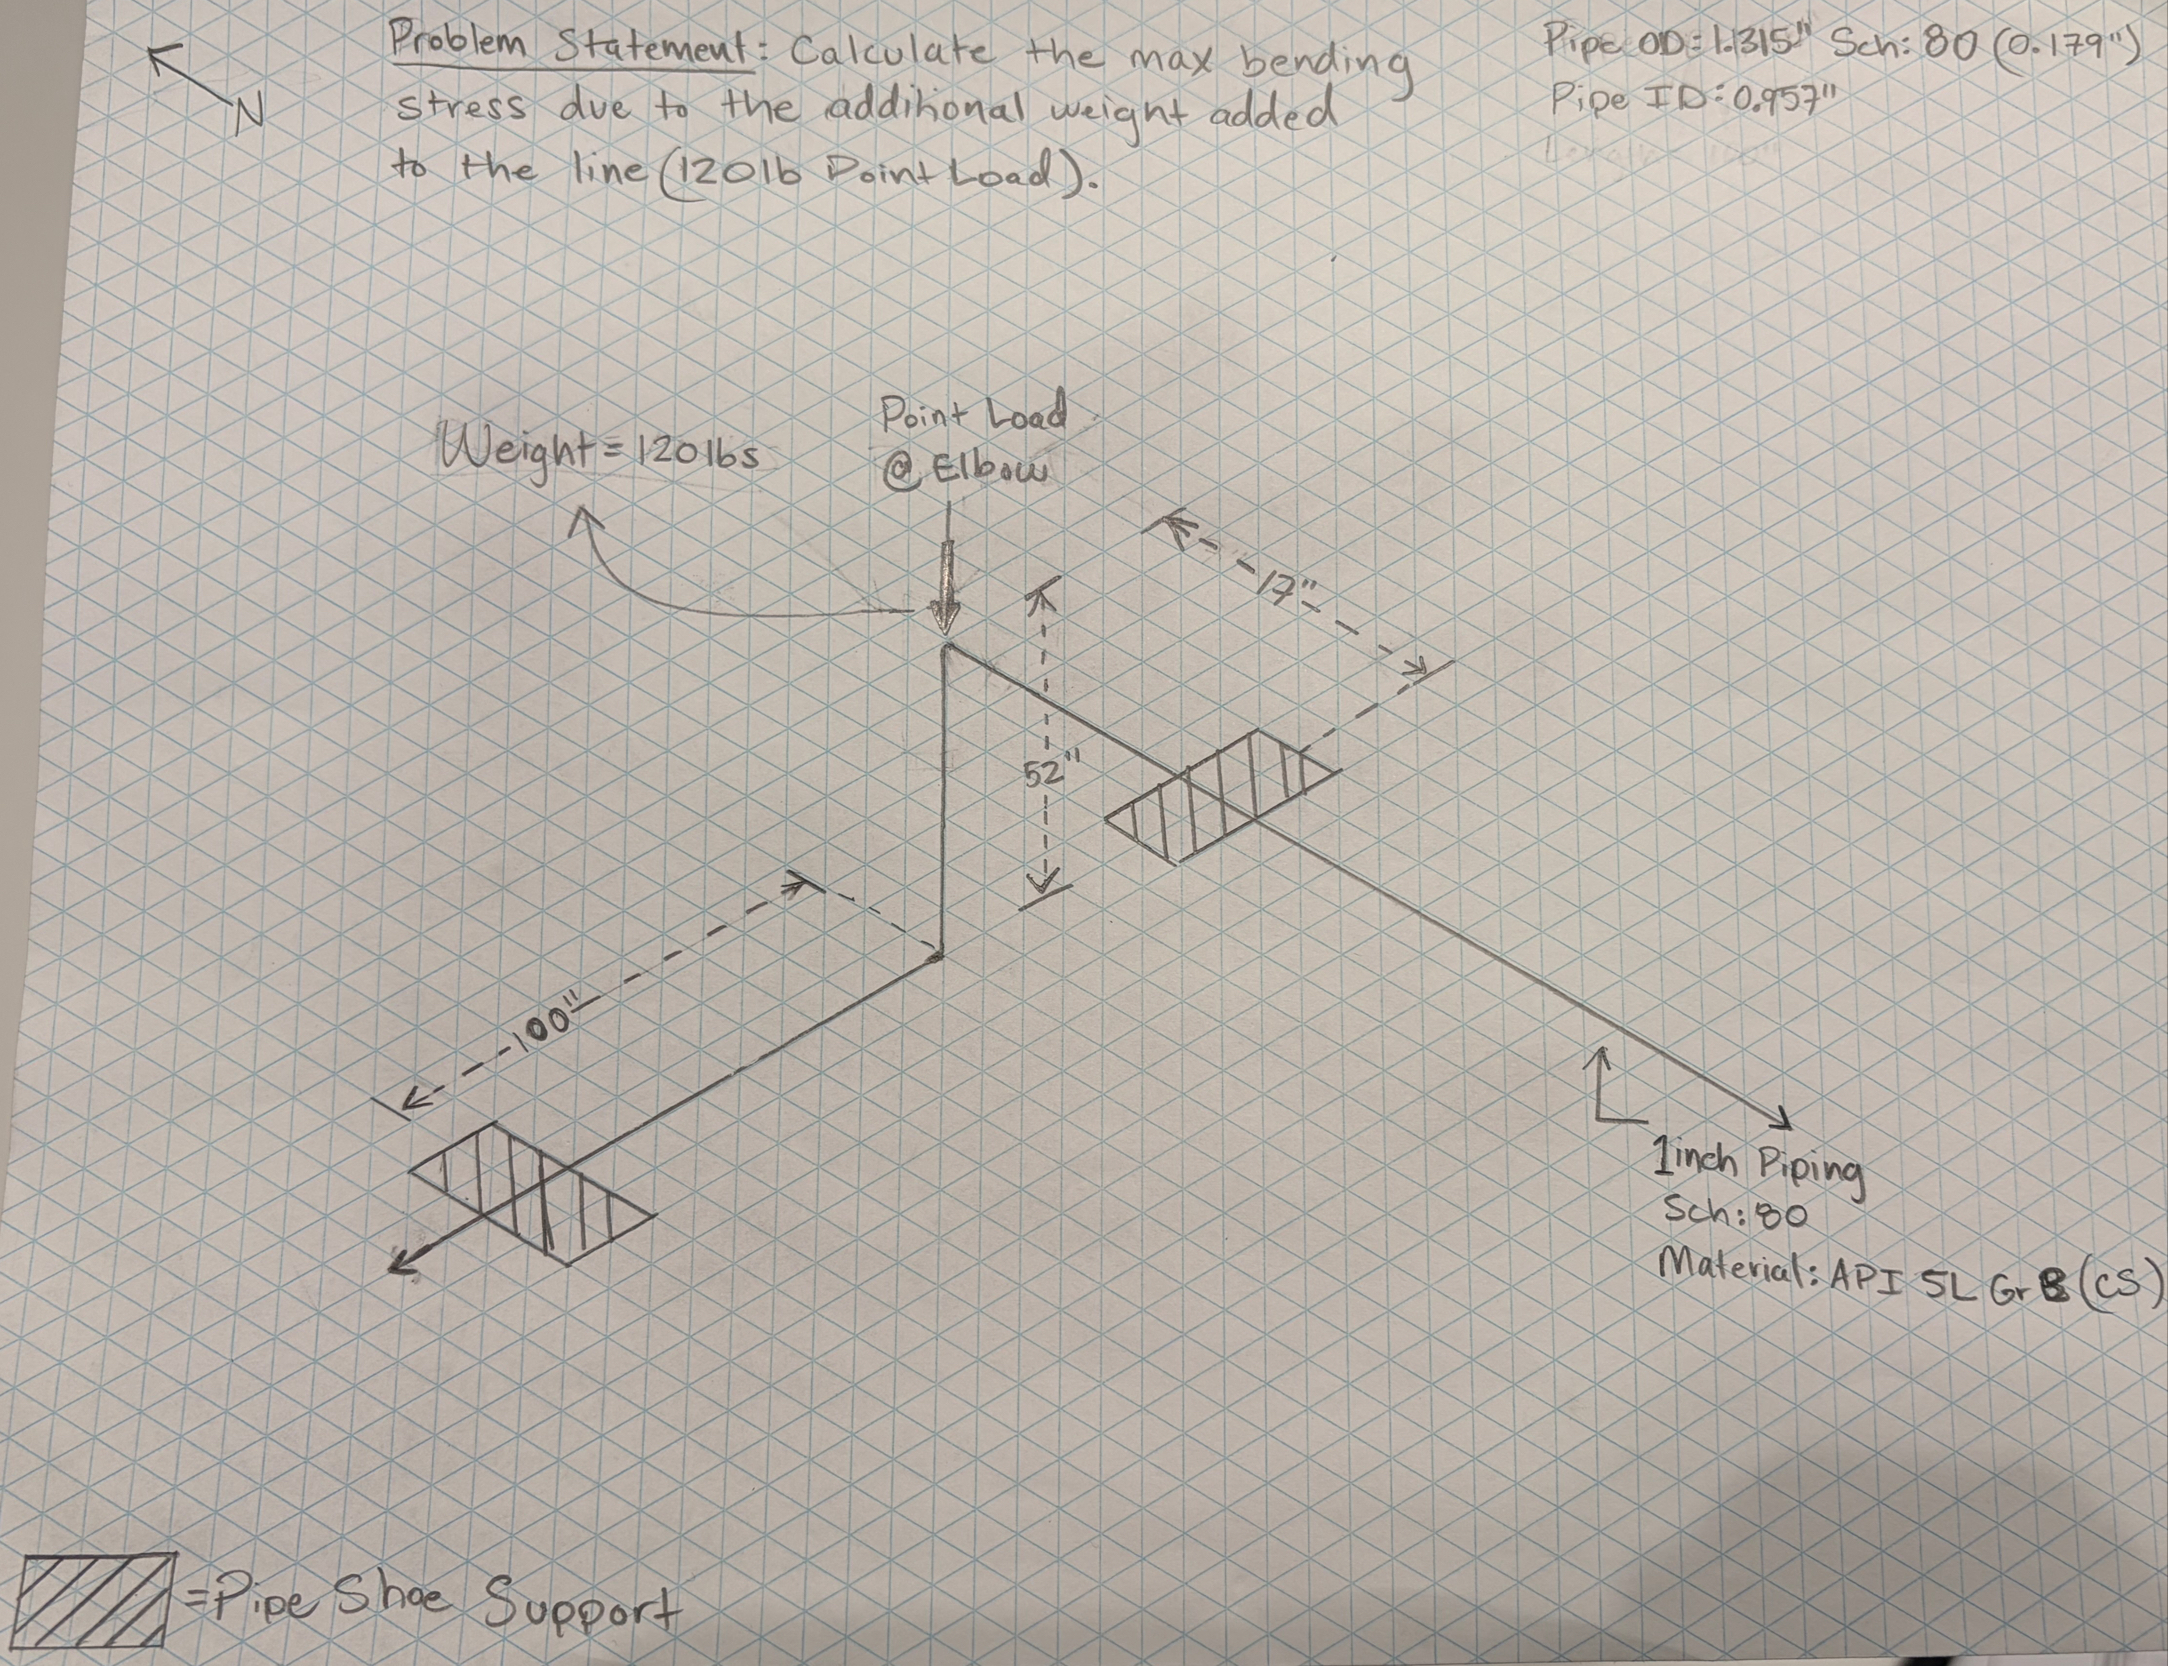 N
Problem Statement: Calculate the max bending
stress due to the additional weight added
to the line (120lb Point Load).
Pipe OD: 1.315" Sch: 80 (0.179")
Pipe ID: 0.957"
Weight = 120lbs
Point Load
@ Elbow
17"
52"
100"
1inch Piping
Sch: 80
Material: API 5L Gr B (CS)
= Pipe Shoe Support